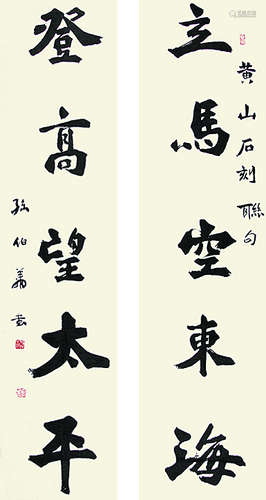 立馬空東海
黄山石刻聯句
登高望太平
孫伯翔書